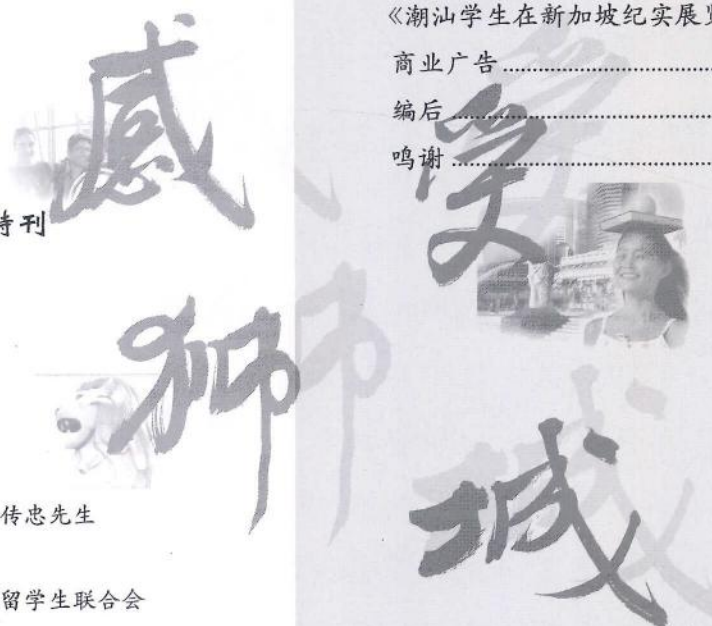 《潮汕学生在新加坡纪实展览
商业广告
编后
鸣谢
感受
特刊
狮城
传忠先生
留学生联合会